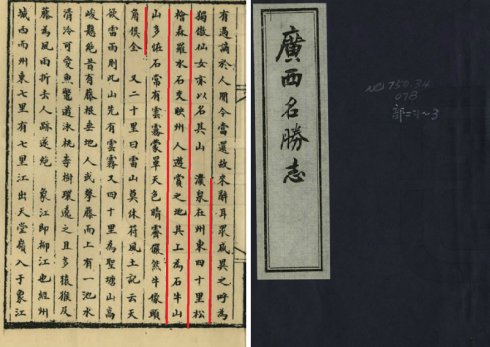 有過謫於人間今當還故來辭耳眾感異之呼為
獨傲仙女亦以名其山 瀑泉在州東四十里松
檜森羅水石交映州人遊賞之地其上為石牛山
山多怪石常有雲霧蒙罩天色晴霽儼然牛像頭
角俱全 又二十里曰雷山莫休符風土記云天
欲雷雨則此山先有雲霧又四十里為聖塘山高
峻懸絕昔有藤根垂地人或攀藤而上有一池水
清冷可愛魚鱉遊泳桃李樹環遶之且多猿猴及
藤為風雨折去人跡遂絕 象江即柳江也經州
城西南州東七里有七里江出天堂嶺入于象江
廣西名勝志
NO 750.34
078